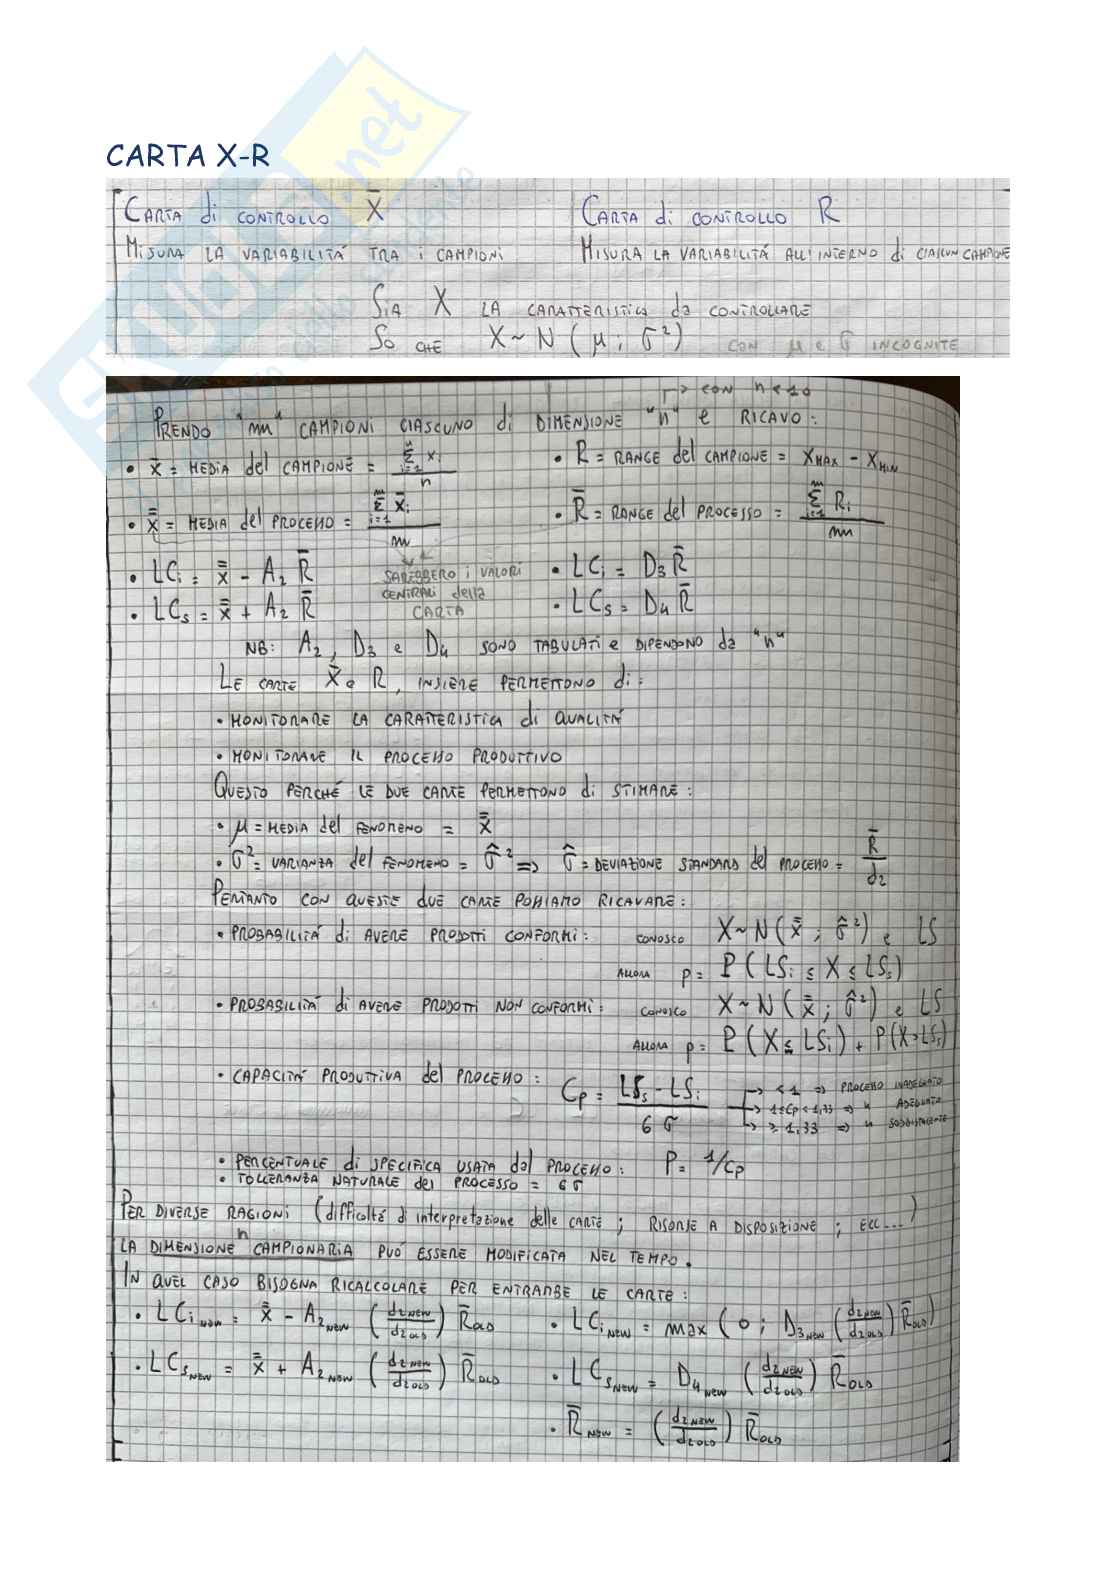 CARTA X-R
CARTA di CONTROLLO X̄ CARTA di CONTROLLO R
MISURA LA VARIABILITÁ TRA i CAMPIONI MISURA LA VARIABILITÁ ALL'INTERNO di CIASCUN CAMPIONE
SIA X LA CARATTERISTICA da CONTROLLARE
SO CHE X ~ N ( μ ; σ² ) CON μ e σ INCOGNITE
↱ CON n < 10
PRENDO "m" CAMPIONI CIASCUNO di DIMENSIONE "n" e RICAVO:
• x̄ = MEDIA del CAMPIONE = Σ_{i=1}^{n} x_i / n • R = RANGE del CAMPIONE = X_MAX - X_MIN
• x̿ = MEDIA del PROCESSO = Σ_{i=1}^{m} x̄_i / m • R̄ = RANGE del PROCESSO = Σ_{i=1}^{m} R_i / m
• LC_i = x̿ - A_2 R̄ • LC_i = D_3 R̄
SAREBBERO i VALORI
CENTRALI della
CARTA
• LC_s = x̿ + A_2 R̄ • LC_s = D_4 R̄
NB: A_2, D_3 e D_4 SONO TABULATI e DIPENDONO da "n"
LE CARTE X̄ e R, INSIEME PERMETTONO di:
• MONITORARE LA CARATTERISTICA di QUALITÁ
• MONITORARE IL PROCESSO PRODUTTIVO
QUESTO PERCHÉ LE DUE CARTE PERMETTONO di STIMARE:
• μ = MEDIA del FENOMENO = x̿
• σ² = VARIANZA del FENOMENO = σ̂² => σ̂ = DEVIAZIONE STANDARD del PROCESSO = R̄ / d_2
PERTANTO CON QUESTE DUE CARTE POSSIAMO RICAVARE:
• PROBABILITÁ di AVERE PRODOTTI CONFORMI: CONOSCO X ~ N ( x̿ ; σ̂² ) e LS
ALLORA p = P ( LS_i ≤ X ≤ LS_s )
• PROBABILITÁ di AVERE PRODOTTI NON CONFORMI: CONOSCO X ~ N ( x̿ ; σ̂² ) e LS
ALLORA p = P ( X ≤ LS_i ) + P ( X > LS_s )
• CAPACITÁ PRODUTTIVA del PROCESSO: C_p = LS_s - LS_i / 6 σ
→ < 1 => PROCESSO INADEGUATO
→ 1 ≤ Cp < 1,33 => " ADEGUATO
→ ≥ 1,33 => " SODDISFACENTE
• PERCENTUALE di SPECIFICA USATA dal PROCESSO: P = 1/Cp
• TOLLERANZA NATURALE del PROCESSO = 6 σ
PER DIVERSE RAGIONI (difficoltá di interpretazione delle CARTE ; RISORSE A DISPOSIZIONE ; ECC...)
LA DIMENSIONE n CAMPIONARIA PUÓ ESSERE MODIFICATA NEL TEMPO.
IN QUEL CASO BISOGNA RICALCOLARE PER ENTRAMBE LE CARTE:
• LC_i NEW = x̿ - A_2 NEW ( d_2 NEW / d_2 OLD ) R̄_OLD • LC_i NEW = max ( 0 ; D_3 NEW ( d_2 NEW / d_2 OLD ) R̄_OLD )
• LC_s NEW = x̿ + A_2 NEW ( d_2 NEW / d_2 OLD ) R̄_OLD • LC_s NEW = D_4 NEW ( d_2 NEW / d_2 OLD ) R̄_OLD
• R̄_NEW = ( d_2 NEW / d_2 OLD ) R̄_OLD